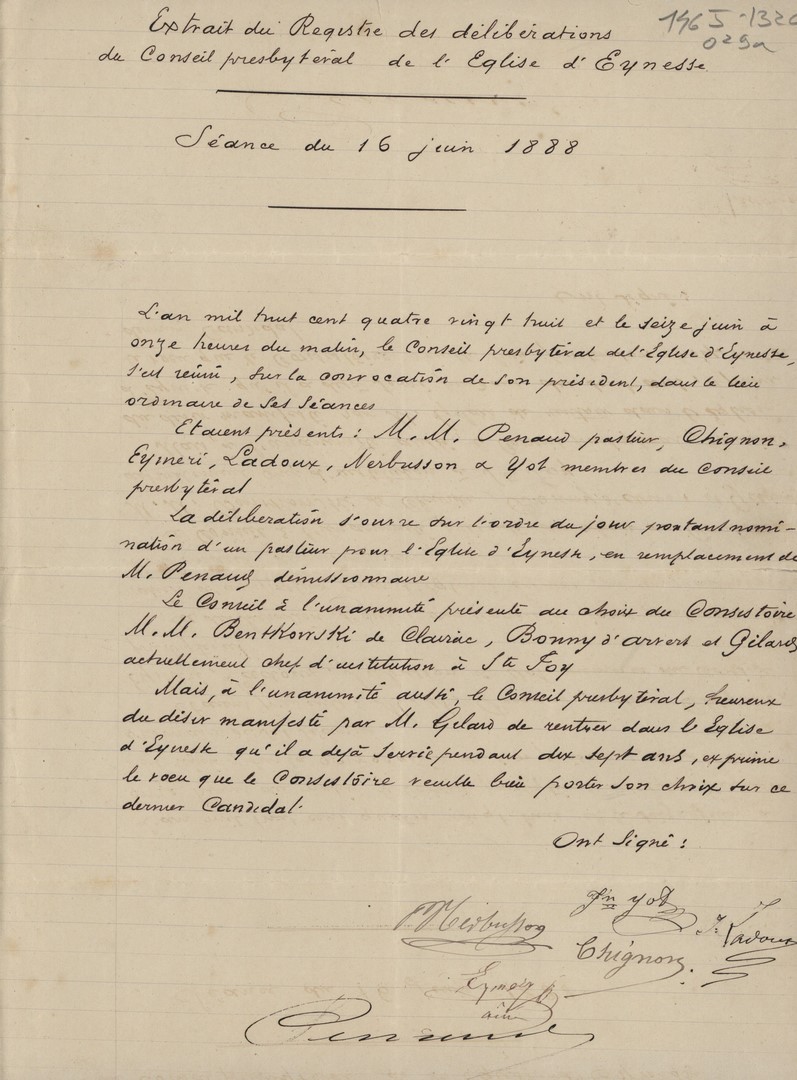 196 J 1320
029a
Extrait du Registre des délibérations
du Conseil presbytéral de l'Eglise d'Eynesse
Séance du 16 juin 1888
L'an mil huit cent quatre vingt huit et le seize juin à
onze heures du matin, le Conseil presbytéral de l'Église d'Eynesse,
s'est réuni, sur la convocation de son président, dans le lieu
ordinaire de ses séances
Etaient présents : M. M. Penaud pasteur, Chignon,
Eymeri, Ladoux, Nerbusson & Yot membres du Conseil
presbytéral
La délibération s'ouvre sur l'ordre du jour portant nomi-
nation d'un pasteur pour l'Eglise d'Eynesse, en remplacement de
M. Penaud démissionnaire
Le Conseil à l'unanimité présente au choix du Consistoire
M. M. Bentkowski de Clairac, Bonny d'arvert et Gélard
actuellement chef d'institution à Ste Foy
Mais, à l'unanimité aussi, le Conseil presbytéral, heureux
du désir manifesté par M. Gélard de rentrer dans l'Eglise
d'Eynesse qu'il a dejà servie pendant dix sept ans, exprime
le voeu que le Consistoire veuille bien porter son choix sur ce
dernier Candidat.
Ont Signé :
Jn Yot
Nerbusson
J. Ladoux
Chignon
Eymery
ainé
Penaud